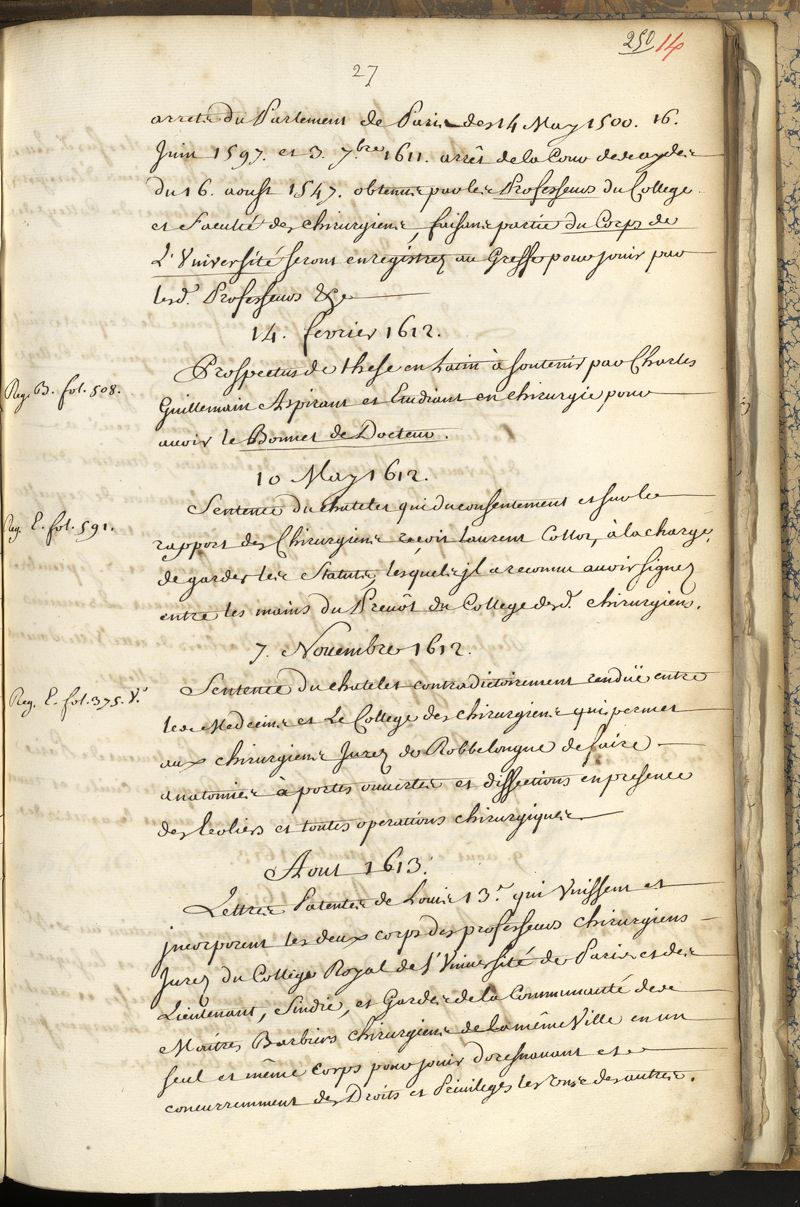 250 14
27
arrets du Parlement de Paris des 14 May 1500. 16.
Juin 1597. et 3. 7.bre 1611. arrêt de la Cour des aydes
du 16. aoust 1547. obtenus par les Professeurs du College
et Faculté des chirurgiens, faisans partie du Corps de
L'Université seront enregistrez au Greffe pour jouir par
lesd. Professeurs &c
14. fevrier 1612.
Reg. B. fol. 508.
Prospectus de these en Latin à soutenir par Charles
Guillemain Aspirant et Etudiant en chirurgie pour
avoir le Bonnet de Docteur.
10 May 1612.
Reg. E. fol. 591.
Sentence du chatelet qui du consentement et sur le
rapport des Chirurgiens reçoit laurent Cottor, à la charge
de garder les Statuts, lesquels jl a reconnu avoir signez
entre les mains du Prevôt du College desd. chirurgiens.
7. Novembre 1612.
Reg. E. fol. 375. V.º
Sentence du chatelet contradictoirement renduë entre
les Medecins et Le College des chirurgiens qui permet
aux chirurgiens Jurez de Robbe longue de faire
anatomies à portes ouvertes et dissections en presence
des Ecoliers et toutes operations chirurgiques
Aout 1613.
Lettres Patentes de Louis 13.e qui Unissent et
jncorporent les deux corps des professeurs chirurgiens
Jurez du College Royal de l'Université de Paris et des
Lieutenant, Sindic, et Gardes de la Communauté des
Maitres Barbiers chirurgiens de la même Ville en un
seul et même corps pour jouir doresnavant et
concurremment des Droits et Privileges les uns des autres.